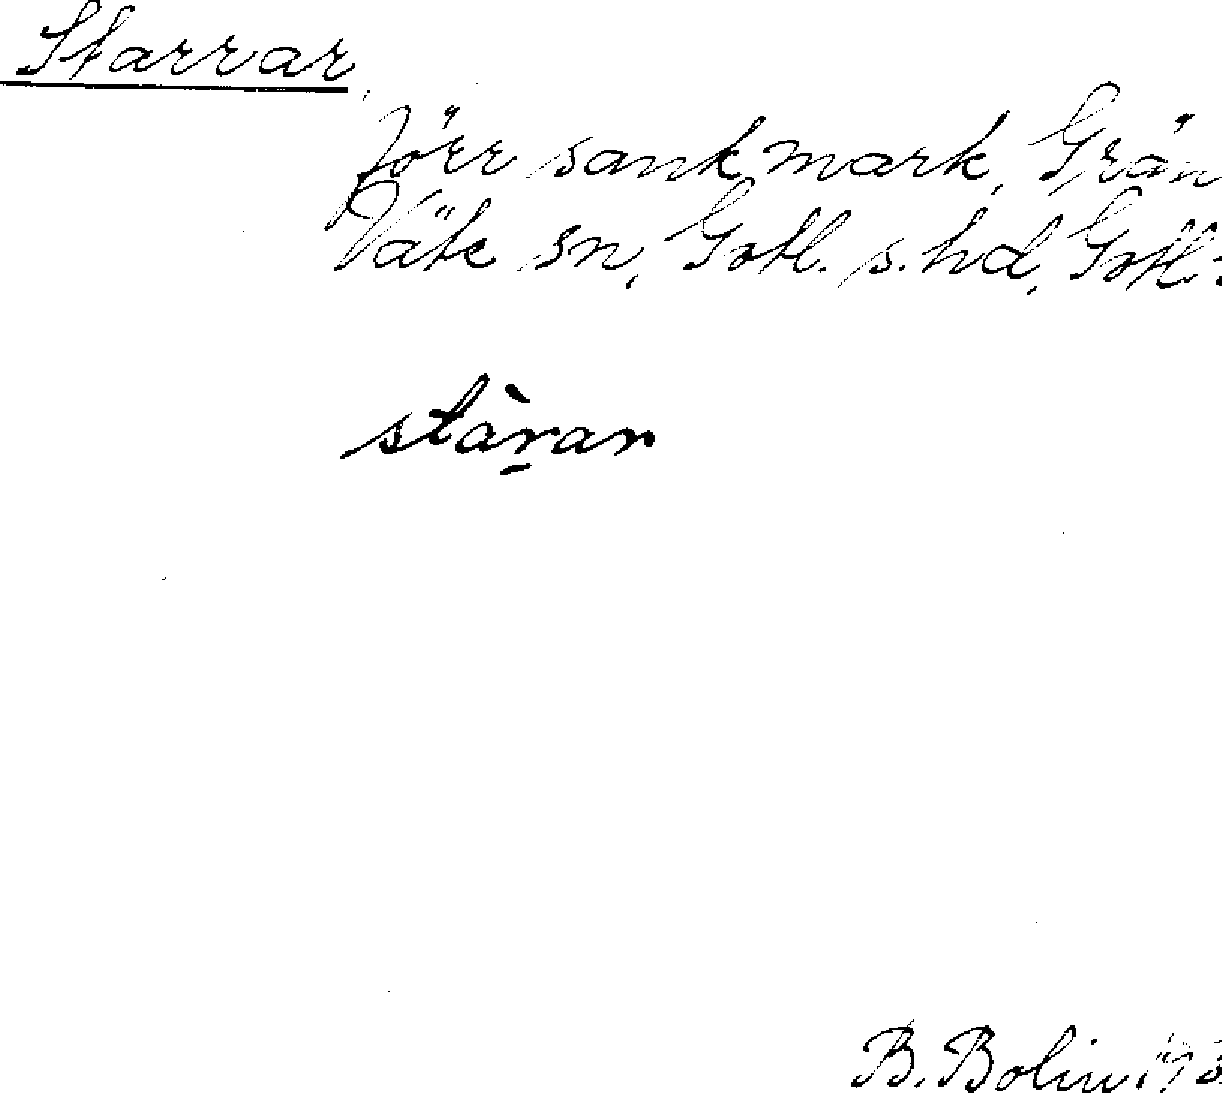 Starrar
förr sank mark, Grän
Väte sn, Gotl. s. hd, Gotl.
stàr̠ar
B. Bolin